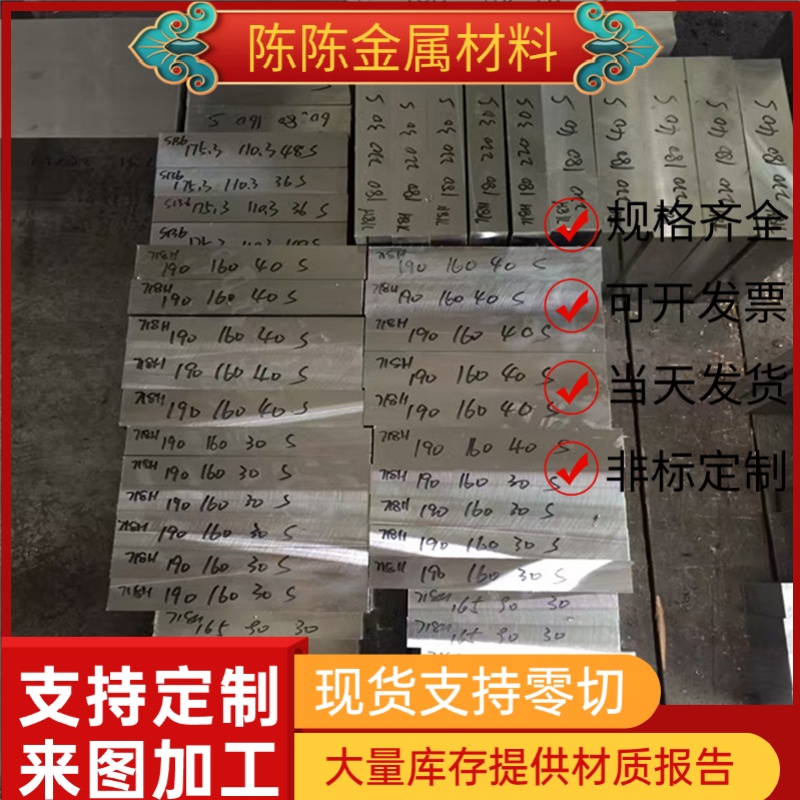 陈陈金属材料
S136 175.3 110.3 48 S
S136 175.3 110.3 36 S
S136 175.3 110.3 36 S
规格齐全
可开发票
当天发货
非标定制
718H 190 160 40 S
718H 190 160 40 S
718H 190 160 40 S
718H 190 160 40 S
718H 190 160 40 S
718H 190 160 30 S
718H 190 160 30 S
718H 190 160 30 S
718H 190 160 30 S
718H 190 160 30 S
718H 190 160 30 S
718H 165 90 30
718H 190 160 40 S
718H 190 160 40 S
718H 190 160 40 S
718H 190 160 40 S
718H 190 160 40 S
718H 190 160 40 S
718H 190 160 30 S
718H 190 160 30 S
718H 190 160 30 S
718H 190 160 30 S
718H 165 90 30
718H 165 90 30
支持定制
来图加工
现货支持零切
大量库存提供材质报告